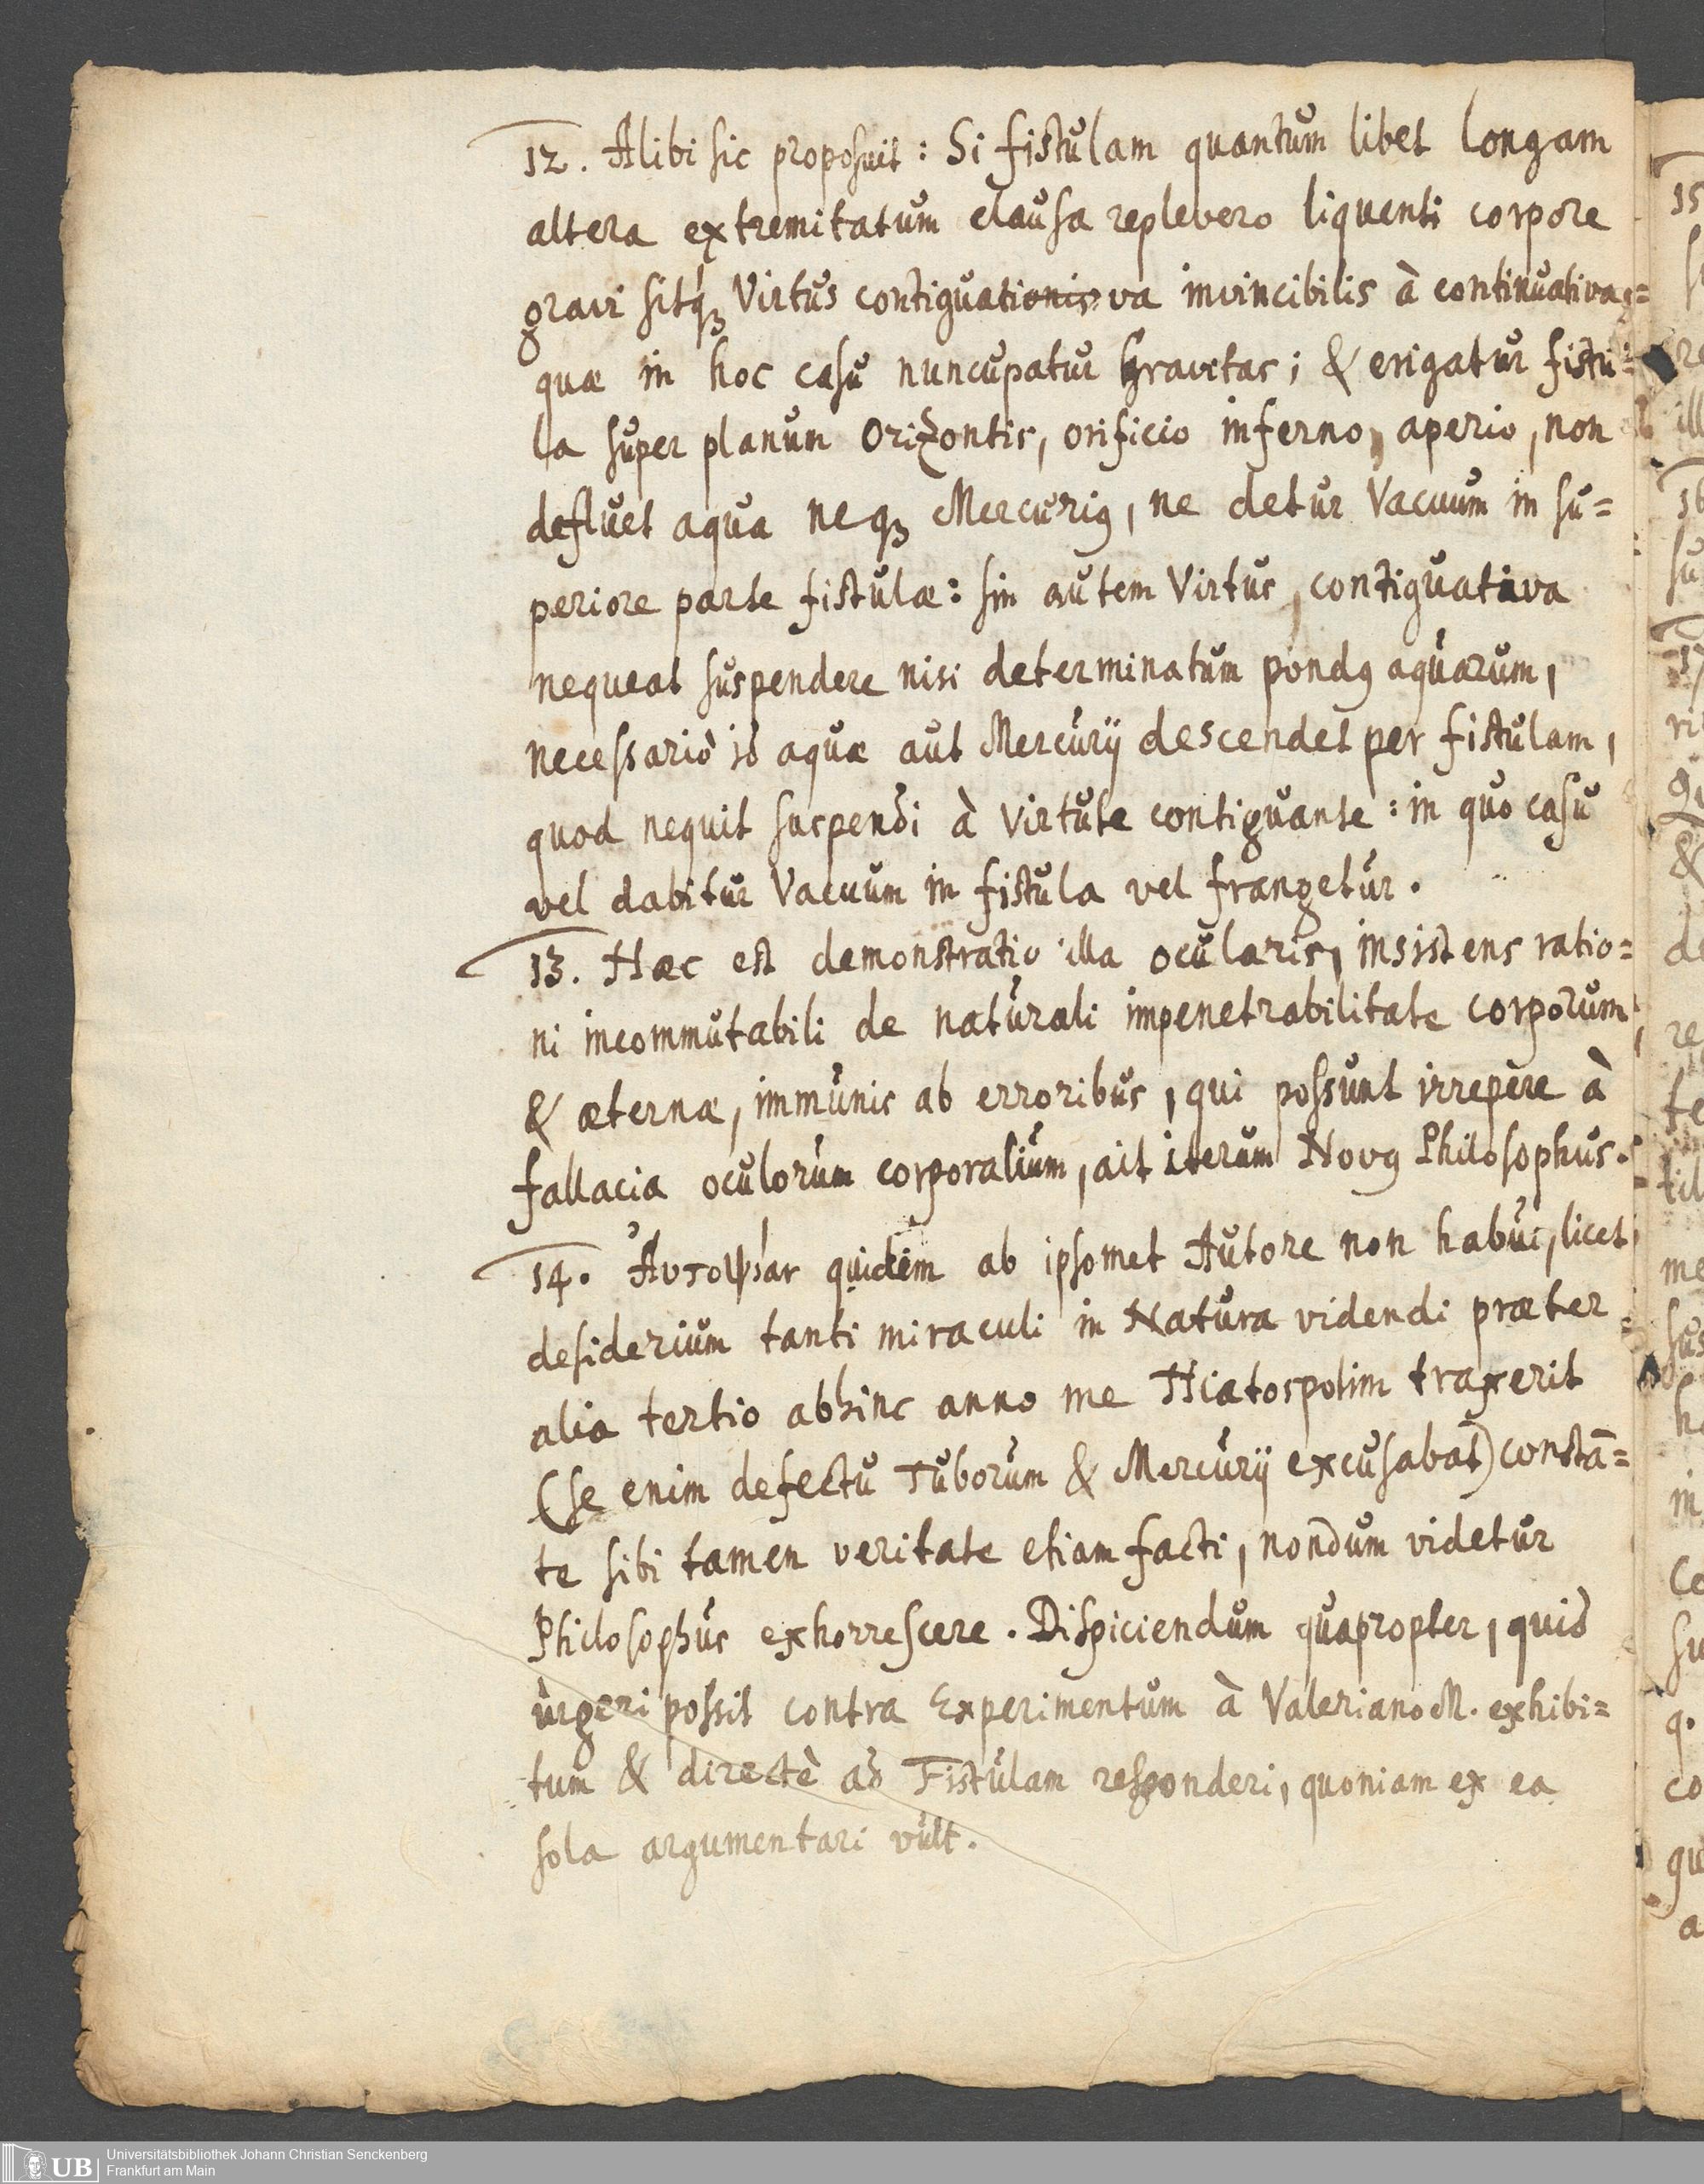 12. Alibi sic proposuit: Si fistulam quantum libet longam
altera extremitatum clausa replevero liquenti corpore
gravi sitqꝫ Virtus contiguationis va invincibilis à continuativa,=
quæ in hoc casu nuncupatur Gravitas; & erigatur fistu=
la super planum Orizontis, orificio inferno, aperio, non
defluet aqua neqꝫ Mercuriꝯ, ne detur Vacuum in su=
periore parte fistulæ: sin autem Virtus, contiguativa
nequeat suspendere nisi determinatum pondꝯ aquarum,
necessariò id aquæ aut Mercurÿ descendet per fistulam,
quod nequit suspendi à virtute contiguante: in quo casu
vel dabitur Vacuum in fistula vel frangetur.
13. Hæc est demonstratio illa ocularis, insistens ratio=
ni incommutabili de naturali impenetrabilitate corporum
& æternæ, immunis ab erroribus, qui possunt irrepere à
fallacia oculorum corporalium, ait iterum Novꝯ Philosophus.
14. Ἀυτοψίαν quidem ab ipsomet Autore non habui, licet
desiderium tanti miraculi in Natura videndi præter
alia tertio abhinc anno me Hiatospolim traxerit
(se enim defectu Tuborum & Mercurÿ excusabat) constā=
te sibi tamen veritate etiam facti, nondum videtur
Philosophus exhorrescere. Dispiciendum quapropter, quid
urgeri possit contra Experimentum à Valeriano M. exhibi=
tum & directè ad Fistulam responderi, quoniam ex ea
sola argumentari vult.
Universitätsbibliothek Johann Christian Senckenberg
Frankfurt am Main
UB